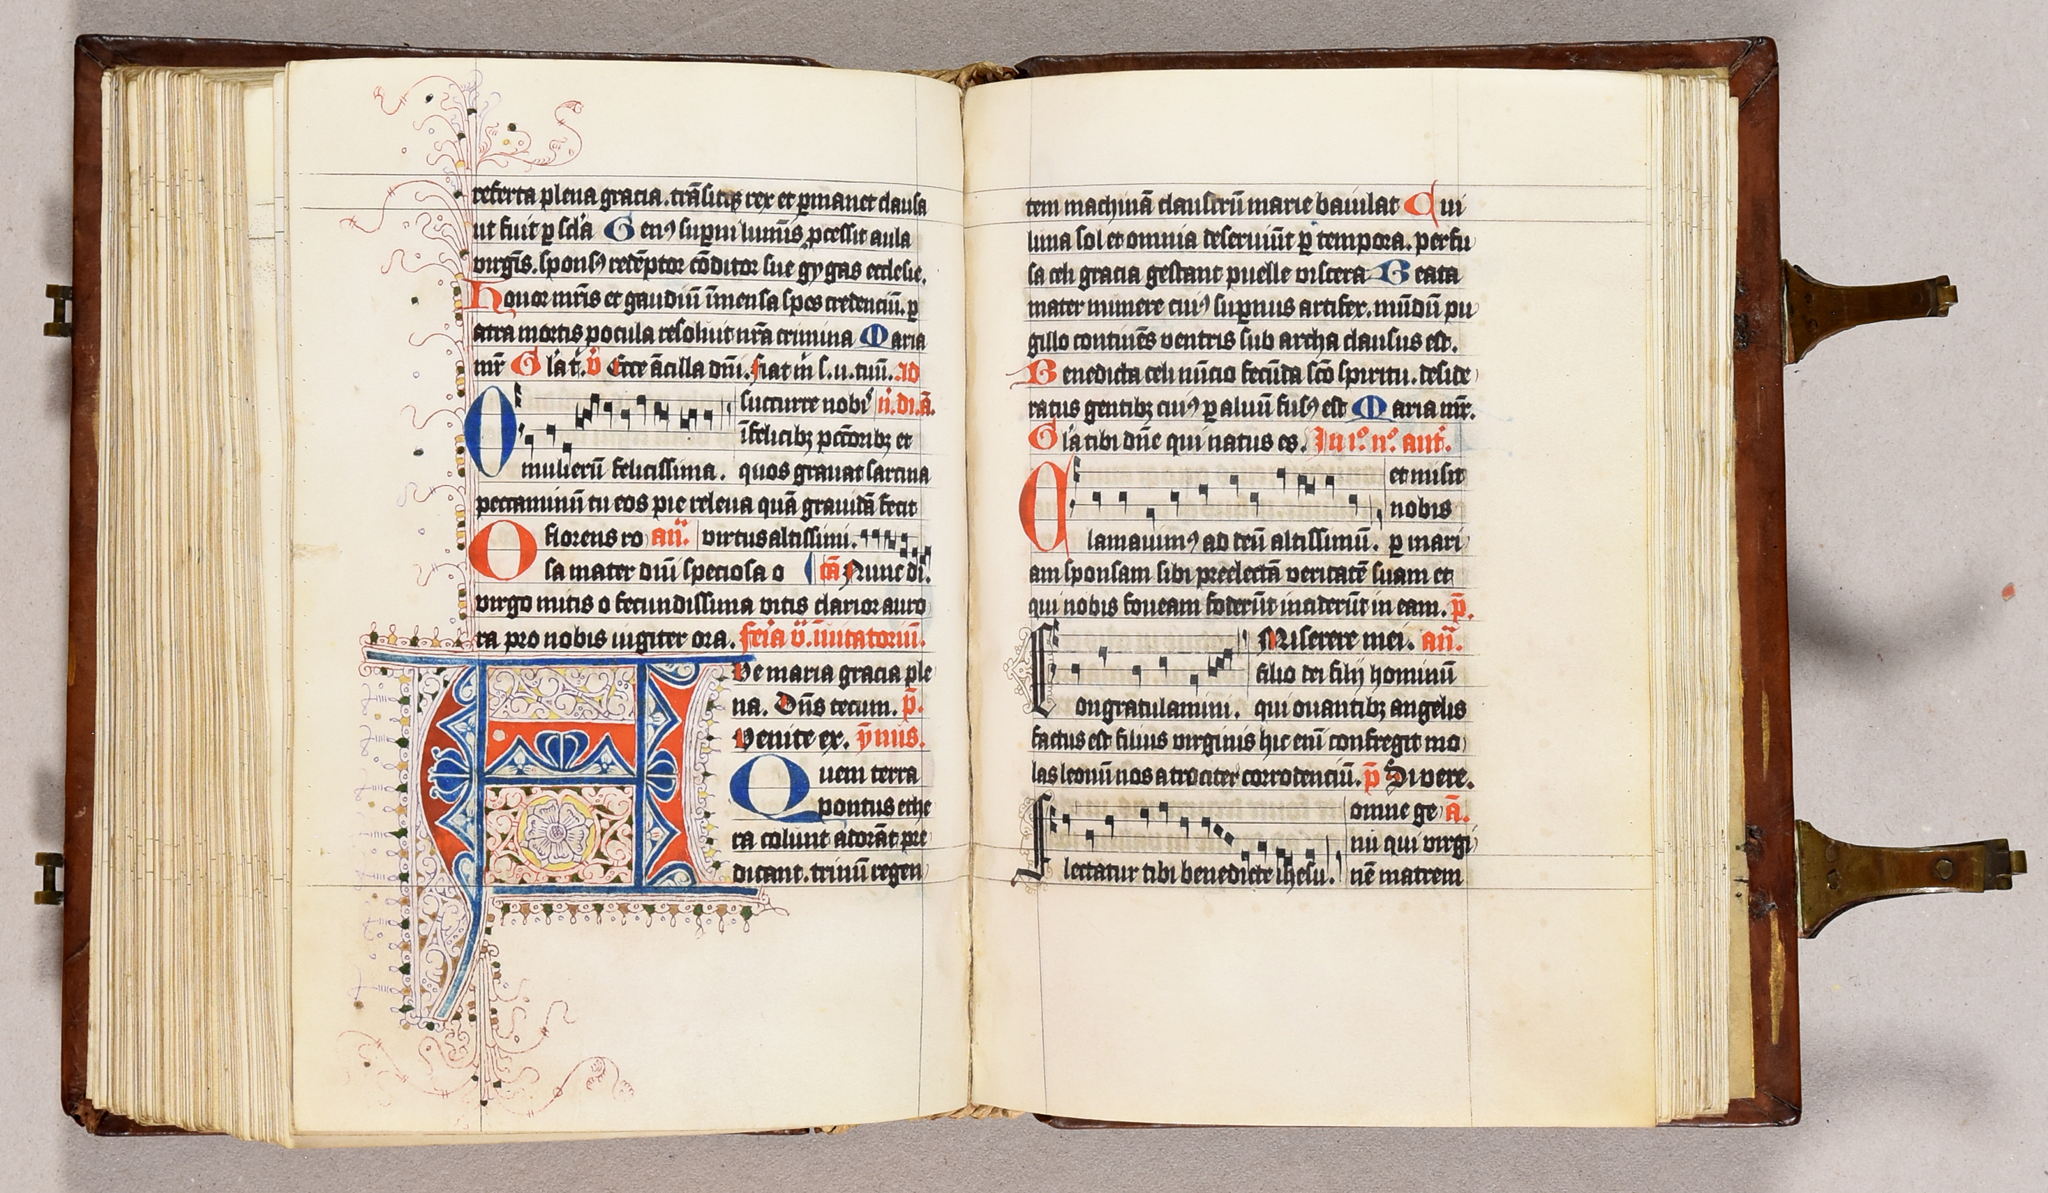 referta plena gracia. trāsitqȝ rex et p̄manet clausa
ut fuit p̄ sc̄la Genꝰ sup̄ni lumīs p̄cessit aula
virgīs. sponsꝰ redēptor cōditor sue gygas ecclesie.
Honor mr̄is et gaudiū īmensa spes credenciū. p̄
atra mortis pocula resoluit nr̄a crimina Maria
mr̄ Glāt. v̄ Ecce ācilla dn̄i. fiat m̄ s. u. tuū. ad
O succurre nobi n̄. di. ā.
īfelicibȝ pctōribȝ et
mulierū felicissima. quos grauat sarcina
peccaminū tu eos pie releua quā grauidā fecit
O florens ro an̄. virtus altissimi.
sa mater dn̄i speciosa o cā Nunc di.
virgo mitis o fecundissima vitis clarior auro
ra pro nobis iugiter ora. feria v̄. īuitatoriū.
Ave maria gracia ple
na. Dn̄s tecum. p̄.
Venite ex. ȳnus.
Quem terra
pontus ethe
ra colunt adorāt pre
dicant. trinū regen
tem machinā claustrū marie baiulat Cui
luna sol et omnia deseruiūt p̄ tempora. perfu
sa celi gracia gestant puelle viscera Beata
mater munere cuiꝰ sup̄nus artifex. mūdū pu
gillo continēs ventris sub archa clausus est.
Benedicta celi nūcio fecūda scō spiritu. deside
ratus gentibȝ cuiꝰ p̄ aluū fusꝰ est Maria mr̄.
Gla tibi dn̄e qui natus es. In i° n° ant.
C et misit
nobis
lamauimꝰ ad deū altissimū. p̄ mari
am sponsam sibi preelectā veritatē suam et
qui nobis foueam foderūt inciderūt in eam. p̄.
C Miserere mei. an̄.
filio dei filij hominū
ongratulamini. qui ouantibȝ angelis
factus est filius virginis hic enī confregit mo
las leonū nos atrociter corrodenciū. p̄ Si vere.
L omne ge ā.
nu qui virgi
lectatur tibi benedicte ihesu. nē matrem